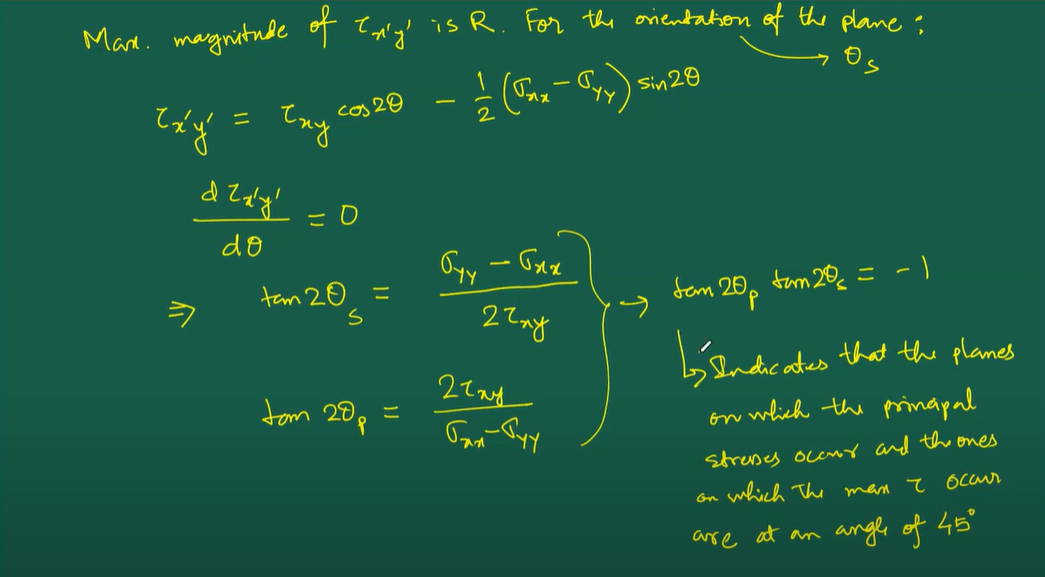 Max. magnitude of τx'y' is R. For the orientation of the plane :
θs
τx'y' = τxy cos2θ − 1/2 (σxx − σyy) sin2θ
dτx'y'/dθ = 0
⇒ tan2θs = (σyy − σxx)/(2τxy)
tan 2θp = 2τxy/(σxx − σyy)
→ tan 2θp tan2θs = −1
↳ Indicates that the planes
on which the principal
stresses occur and the ones
on which the max τ occur
are at an angle of 45°